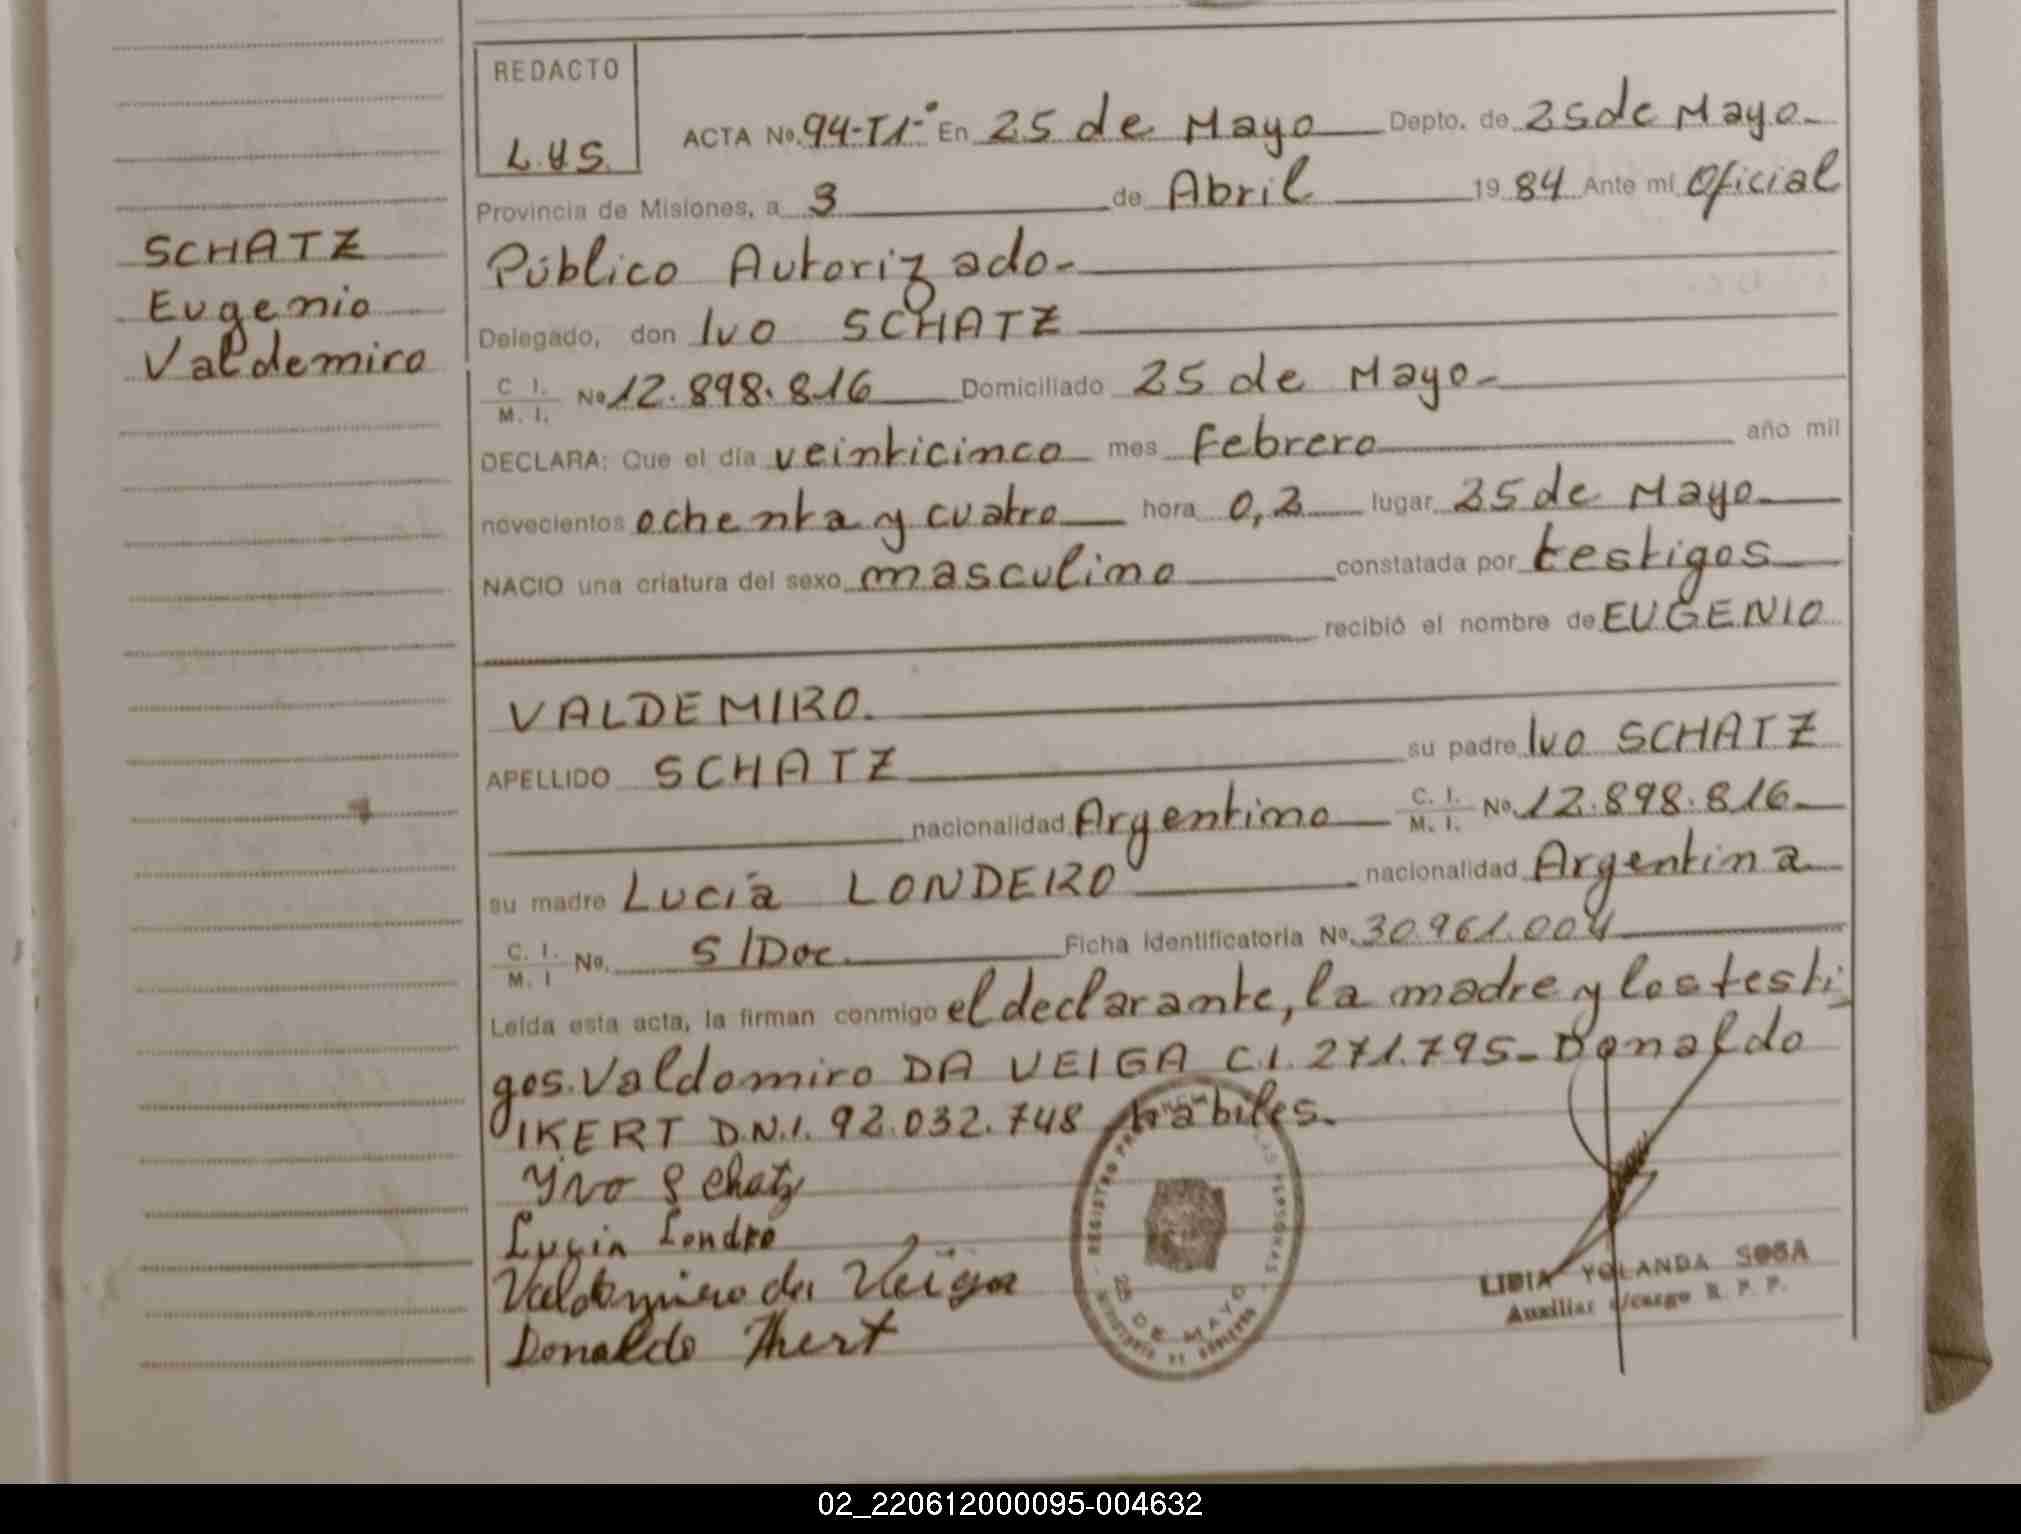 REDACTO
L.Y.S.
ACTA No. 94-T1-° En 25 de Mayo Depto. de 25 de Mayo.
Provincia de Misiones, a 3 de Abril 1984 Ante mí Oficial
Público Autorizado.
Delegado, don Ivo SCHATZ
C. I. / M. I. No 12.898.816 Domiciliado 25 de Mayo.
DECLARA: Que el día veinticinco mes Febrero año mil
novecientos ochenta y cuatro hora 0,2 lugar 25 de Mayo
NACIO una criatura del sexo masculino constatada por testigos
recibió el nombre de EUGENIO
VALDEMIRO.
APELLIDO SCHATZ su padre Ivo SCHATZ
nacionalidad Argentino C. I. / M. I. No. 12.898.816
su madre Lucía LONDERO nacionalidad Argentina
C. I. / M. I No. S/Doc. Ficha identificatoria No. 30.961.004
Leída esta acta, la firman conmigo el declarante, la madre y los testi
gos. Valdomiro DA VEIGA C.I. 271.795- Donaldo
IKERT D.N.I. 92.032.748 hábiles.
Yvo Schatz
Lucia Londro
Valdomiro da Veiga
Donaldo Ikert
SCHATZ
Eugenio
Valdemiro
REGISTRO PROVINCIAL LAS PERSONAS
25 DE MAYO
MINISTERIO DE GOBIERNO
LIDIA YOLANDA SOSA
Auxiliar c/cargo R. P. P.
02_220612000095-004632